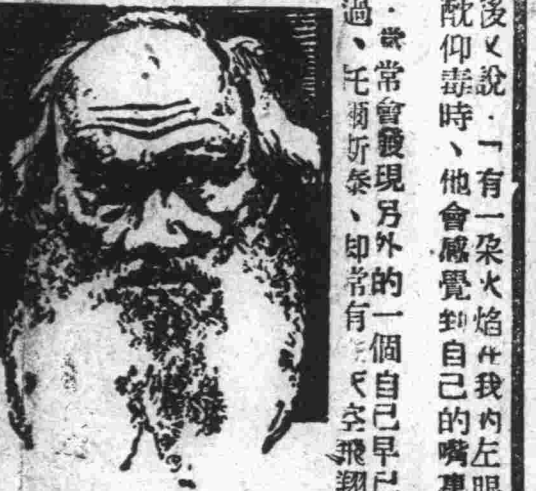 後又說．「有一朶火焰在我的左眼
酖仰毒時、他會感覺到自己的嘴裏
．常會發現另外的一個自己早已
過、托爾斯泰、却常有天空飛翔